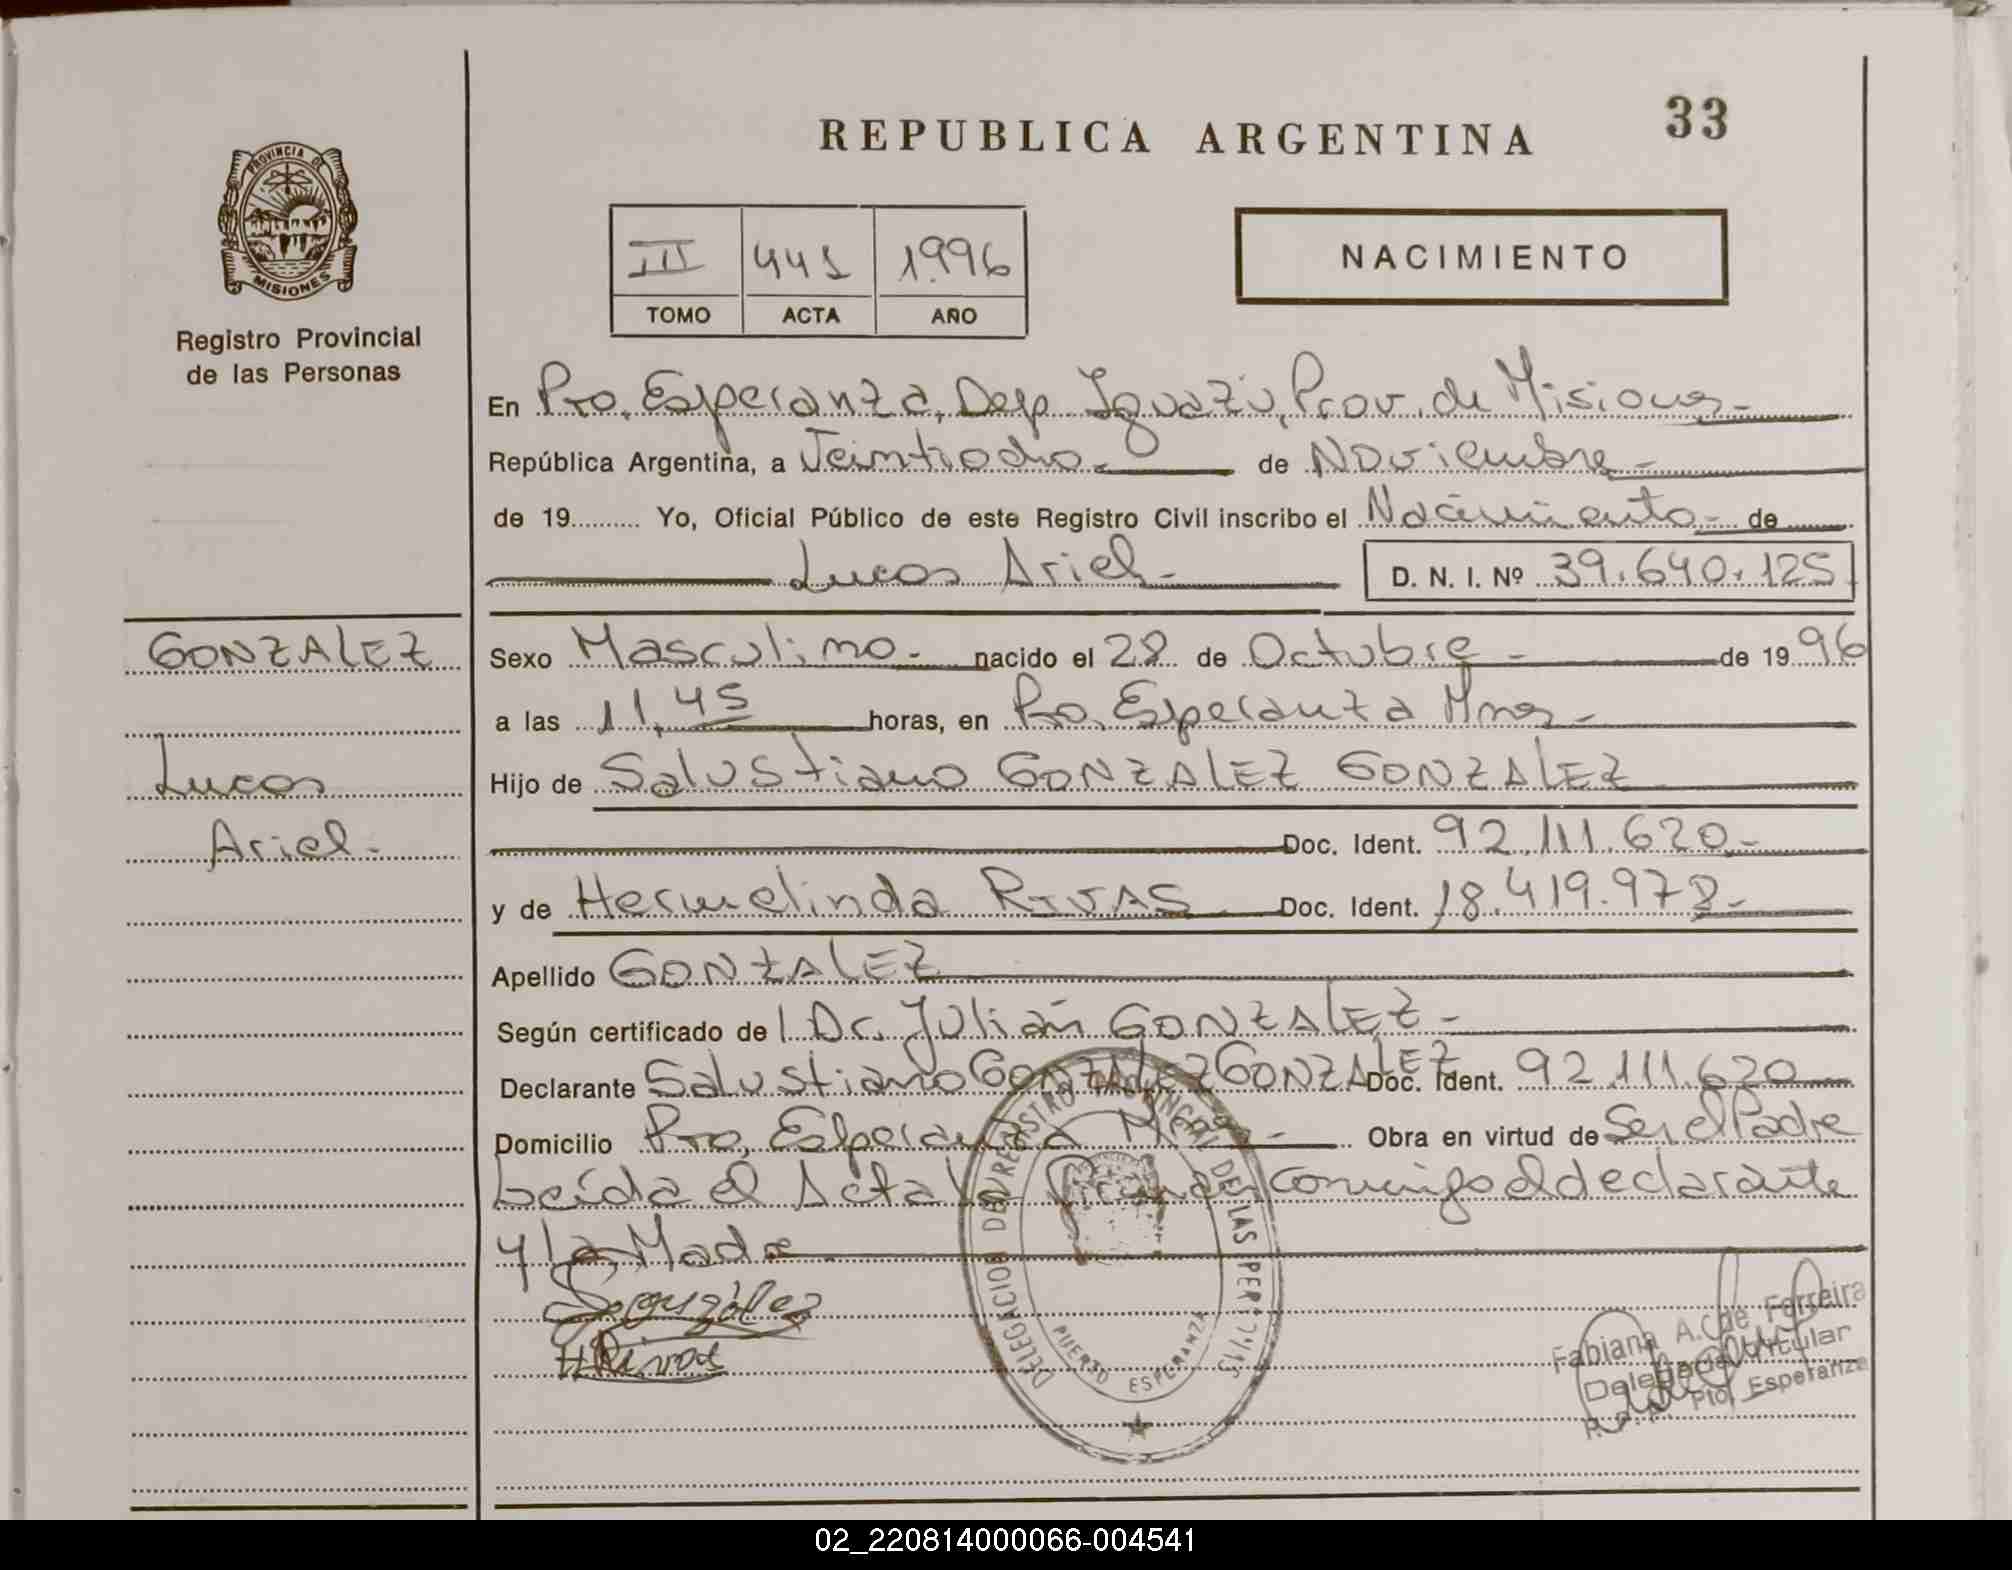 REPUBLICA ARGENTINA
33
PROVINCIA DE
MISIONES
Registro Provincial
de las Personas
III 441 1996
TOMO ACTA AÑO
NACIMIENTO
En Pto. Esperanza, Dep. Iguazú, Prov. de Misiones-
República Argentina, a Veintiocho- de Noviembre-
de 19.......... Yo, Oficial Público de este Registro Civil inscribo el Nacimiento- de
Lucas Ariel- D. N. I. Nº 39.640.125
GONZALEZ
Lucas
Ariel-
Sexo Masculino- nacido el 28 de Octubre- de 1996
a las 11,45 horas, en Pto. Esperanza Mnes-
Hijo de Salustiano GONZALEZ GONZALEZ
Doc. Ident. 92.111.620-
y de Hermelinda RIVAS Doc. Ident. 18.419.978-
Apellido GONZALEZ
Según certificado de l Dr. Julián GONZALEZ-
Declarante Salustiano GONZALEZ GONZALEZ Doc. Ident. 92.111.620
Domicilio Pto. Esperanza Mnes- Obra en virtud de Ser el Padre
Leída el Acta la Firman conmigo el declarante
y la Madre
S. González
H Rivas
DELEGACION DEL REGISTRO PROVINCIAL DE LAS PERSONAS
PUERTO ESPERANZA
Fabiana A. C. de Ferreira
Delegada Titular
R. P. P. Pto. Esperanza
02_220814000066-004541